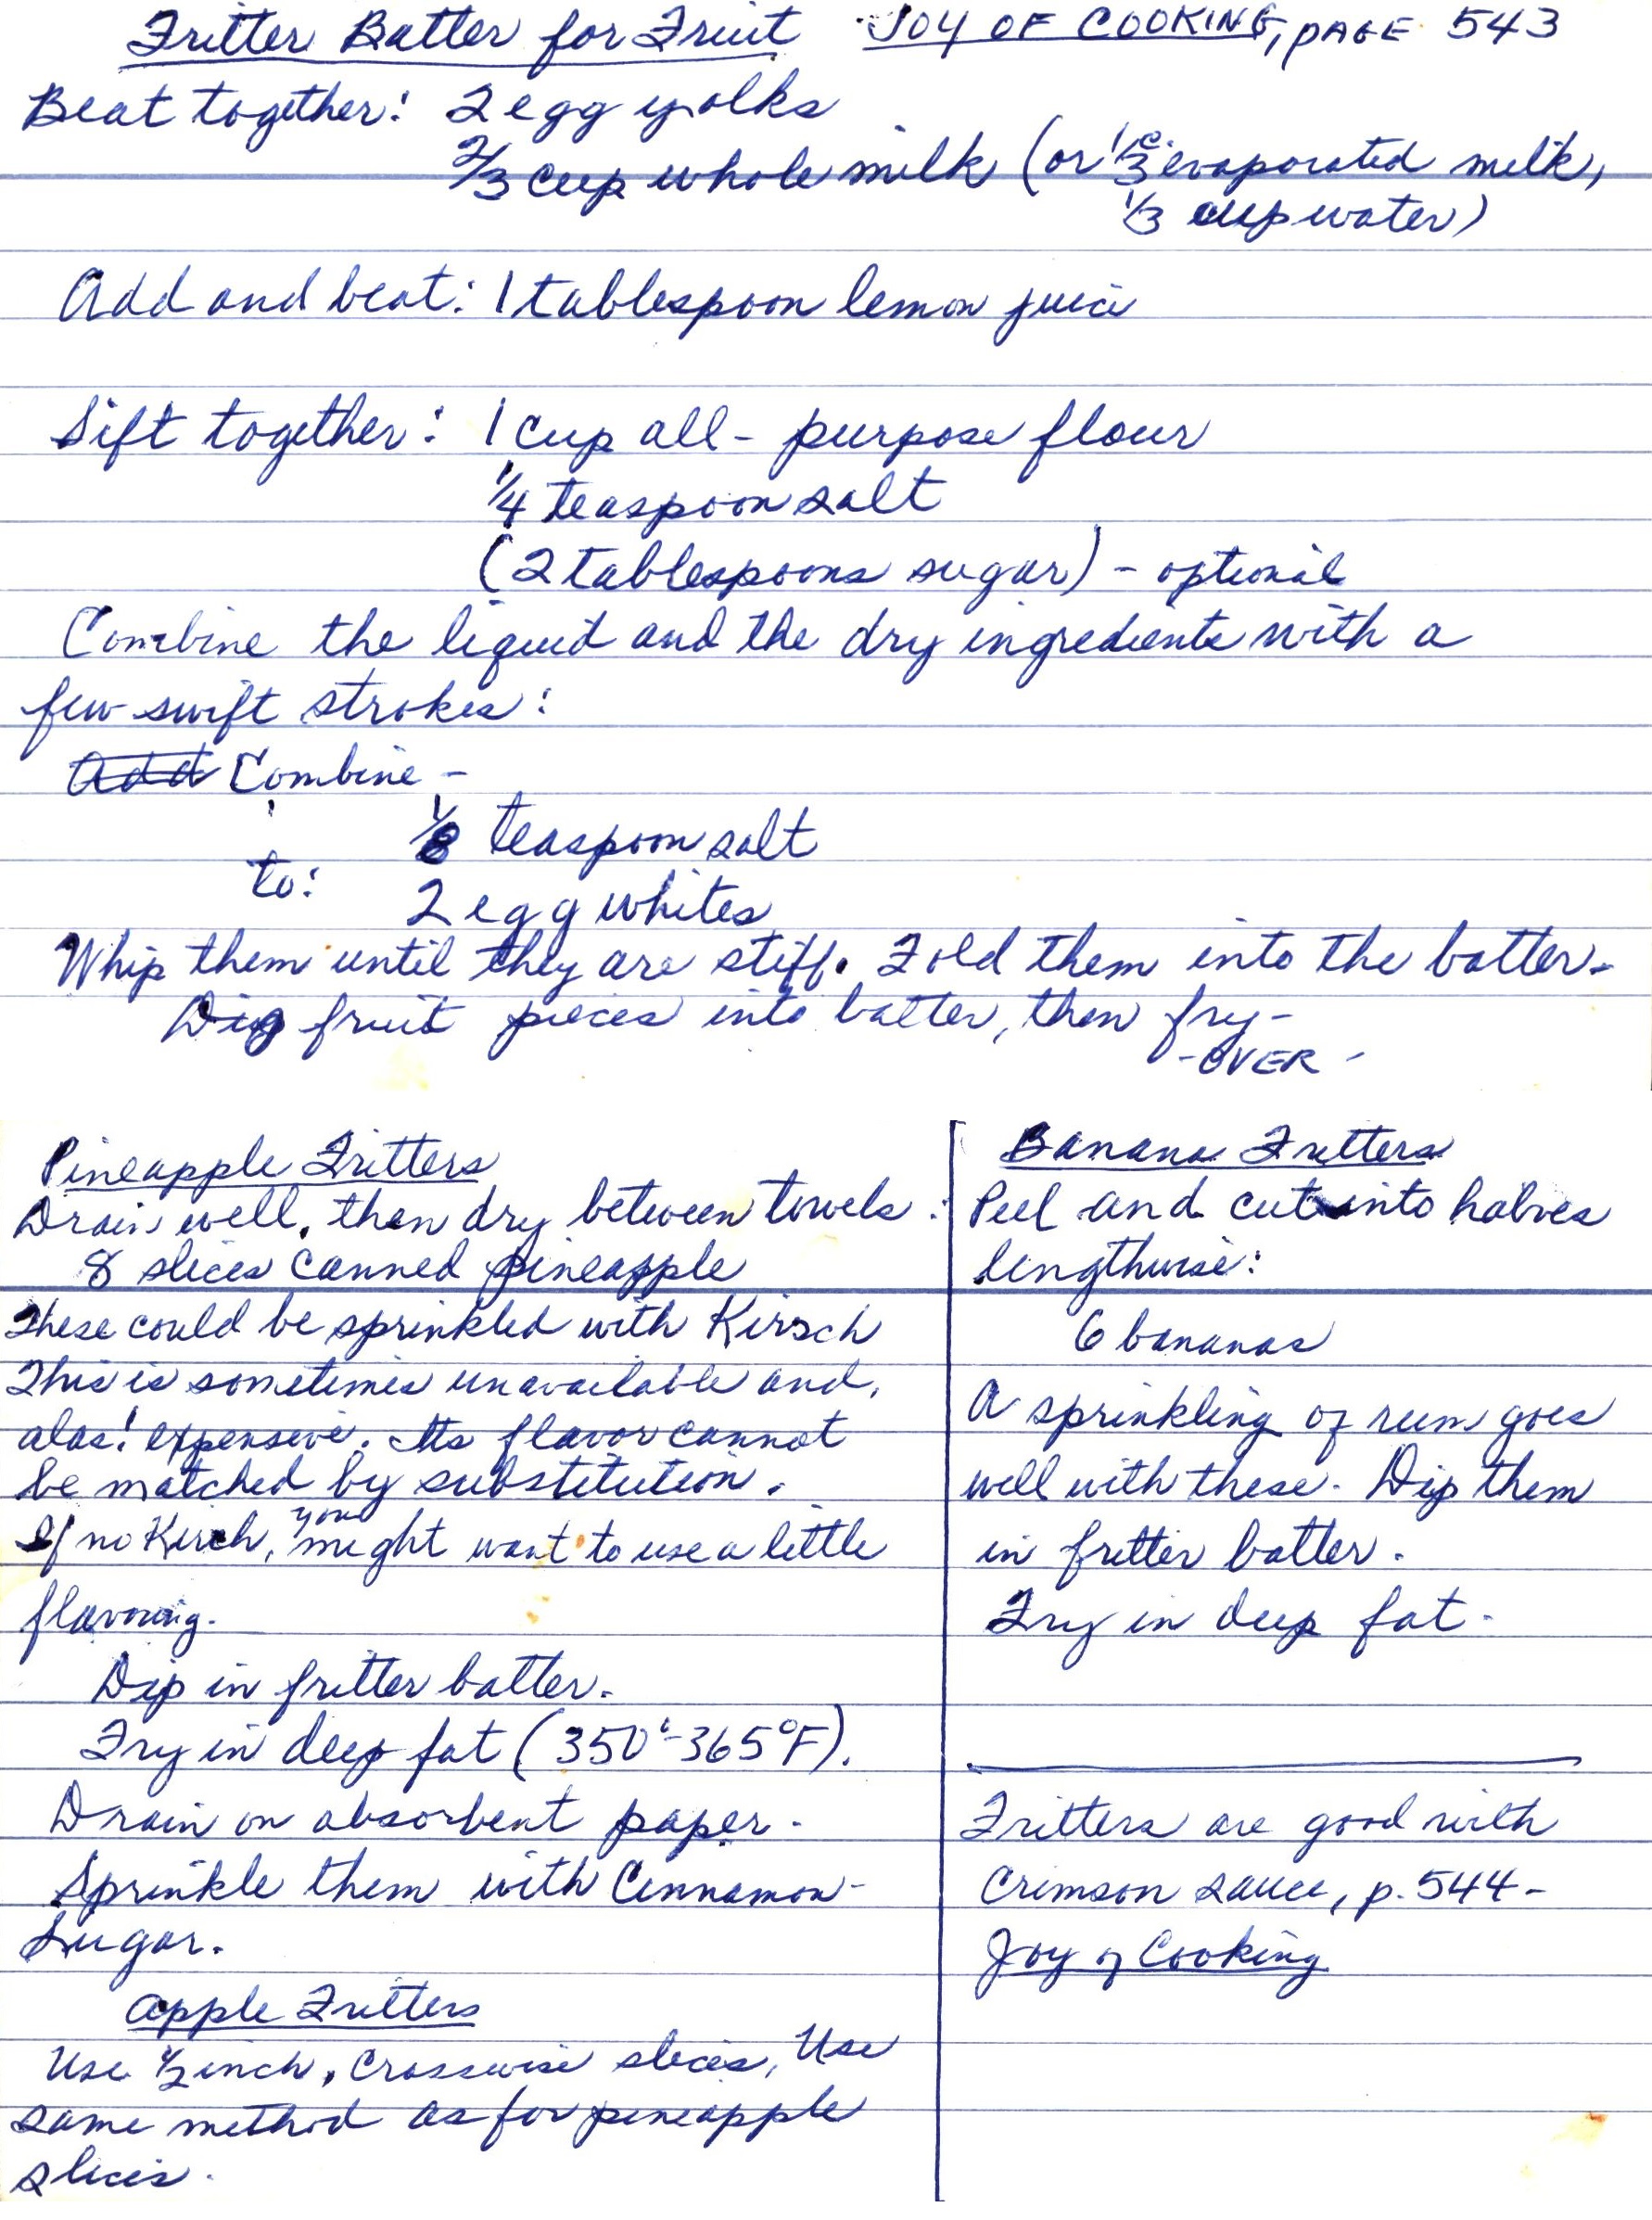 Fritter Batter for Fruit JOY OF COOKING, PAGE 543
Beat together: 2 egg yolks
2/3 cup whole milk (or 1/3 c. evaporated milk,
1/3 cup water)
Add and beat: 1 tablespoon lemon juice
Sift together: 1 cup all-purpose flour
1/4 teaspoon salt
(2 tablespoons sugar) - optional
Combine the liquid and the dry ingredients with a
few swift strokes:
Add Combine -
1/8 teaspoon salt
to:
2 egg whites
Whip them until they are stiff. Fold them into the batter.
Dip fruit pieces into batter, then fry -
- OVER -
Pineapple Fritters
Drain well, then dry between towels:
8 slices canned pineapple
These could be sprinkled with Kirsch
This is sometimes unavailable and,
alas! expensive. Its flavor cannot
be matched by substitution.
If no Kirch, you might want to use a little
flavoring.
Dip in fritter batter.
Fry in deep fat (350°-365°F).
Drain on absorbent paper.
Sprinkle them with Cinnamon-
Sugar.
Apple Fritters
Use 1/2 inch, Crosswise slices, Use
same method as for pineapple
slices.
Banana Fritters
Peel and cut into halves
lengthwise:
6 bananas
A sprinkling of rum goes
well with these. Dip them
in fritter batter.
Fry in deep fat.
Fritters are good with
Crimson Sauce, p. 544-
Joy of Cooking